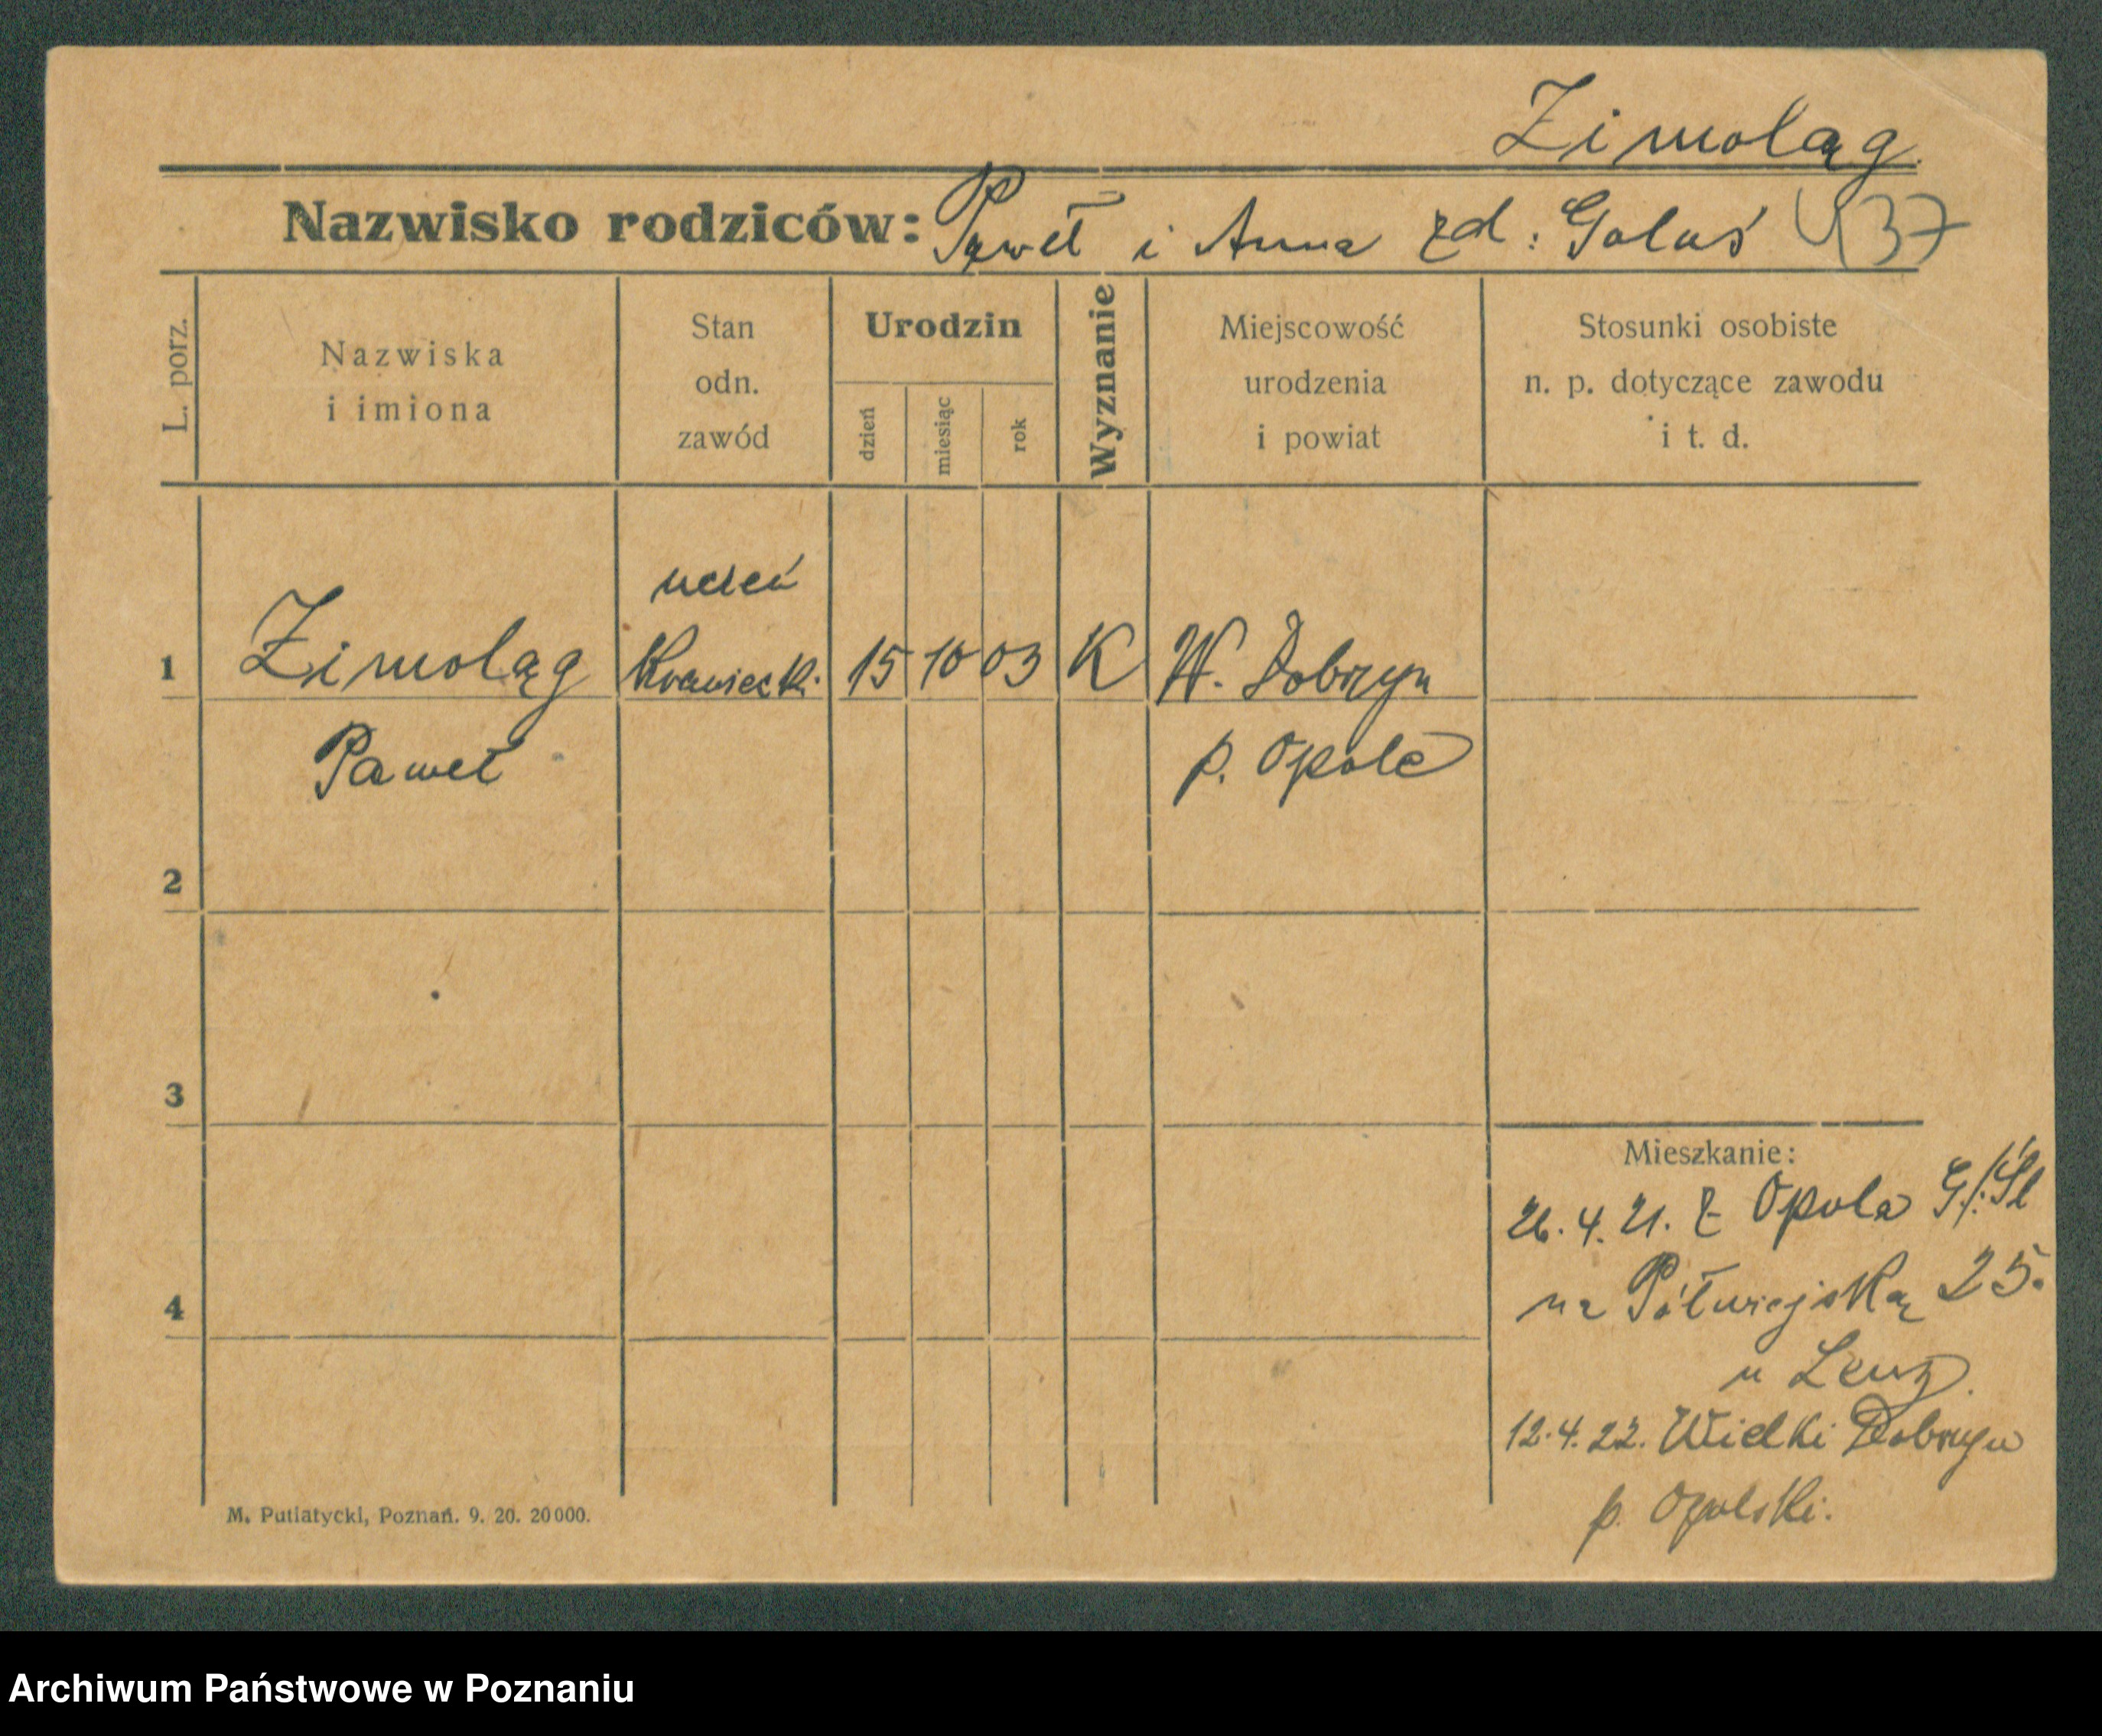 Zimoląg.
Nazwisko rodziców: Paweł i Anna zd: Galuś 37
L. porz.
Nazwiska
i imiona
Stan
odn.
zawód
Urodzin
dzień
miesiąc
rok
Wyznanie
Miejscowość
urodzenia
i powiat
Stosunki osobiste
n. p. dotyczące zawodu
i t. d.
uczeń
1 Zimoląg Krawiecki. 15 10 03 K W. Dobrzyn
Paweł p. Opole
2
3
4
Mieszkanie:
26.4.21. z Opola G./Śl
na Półwiejską 25.
u Lenz.
12.4.22. Wielki Dobrzyn
p. Opolski.
M. Putiatycki, Poznań. 9. 20. 20000.
Archiwum Państwowe w Poznaniu